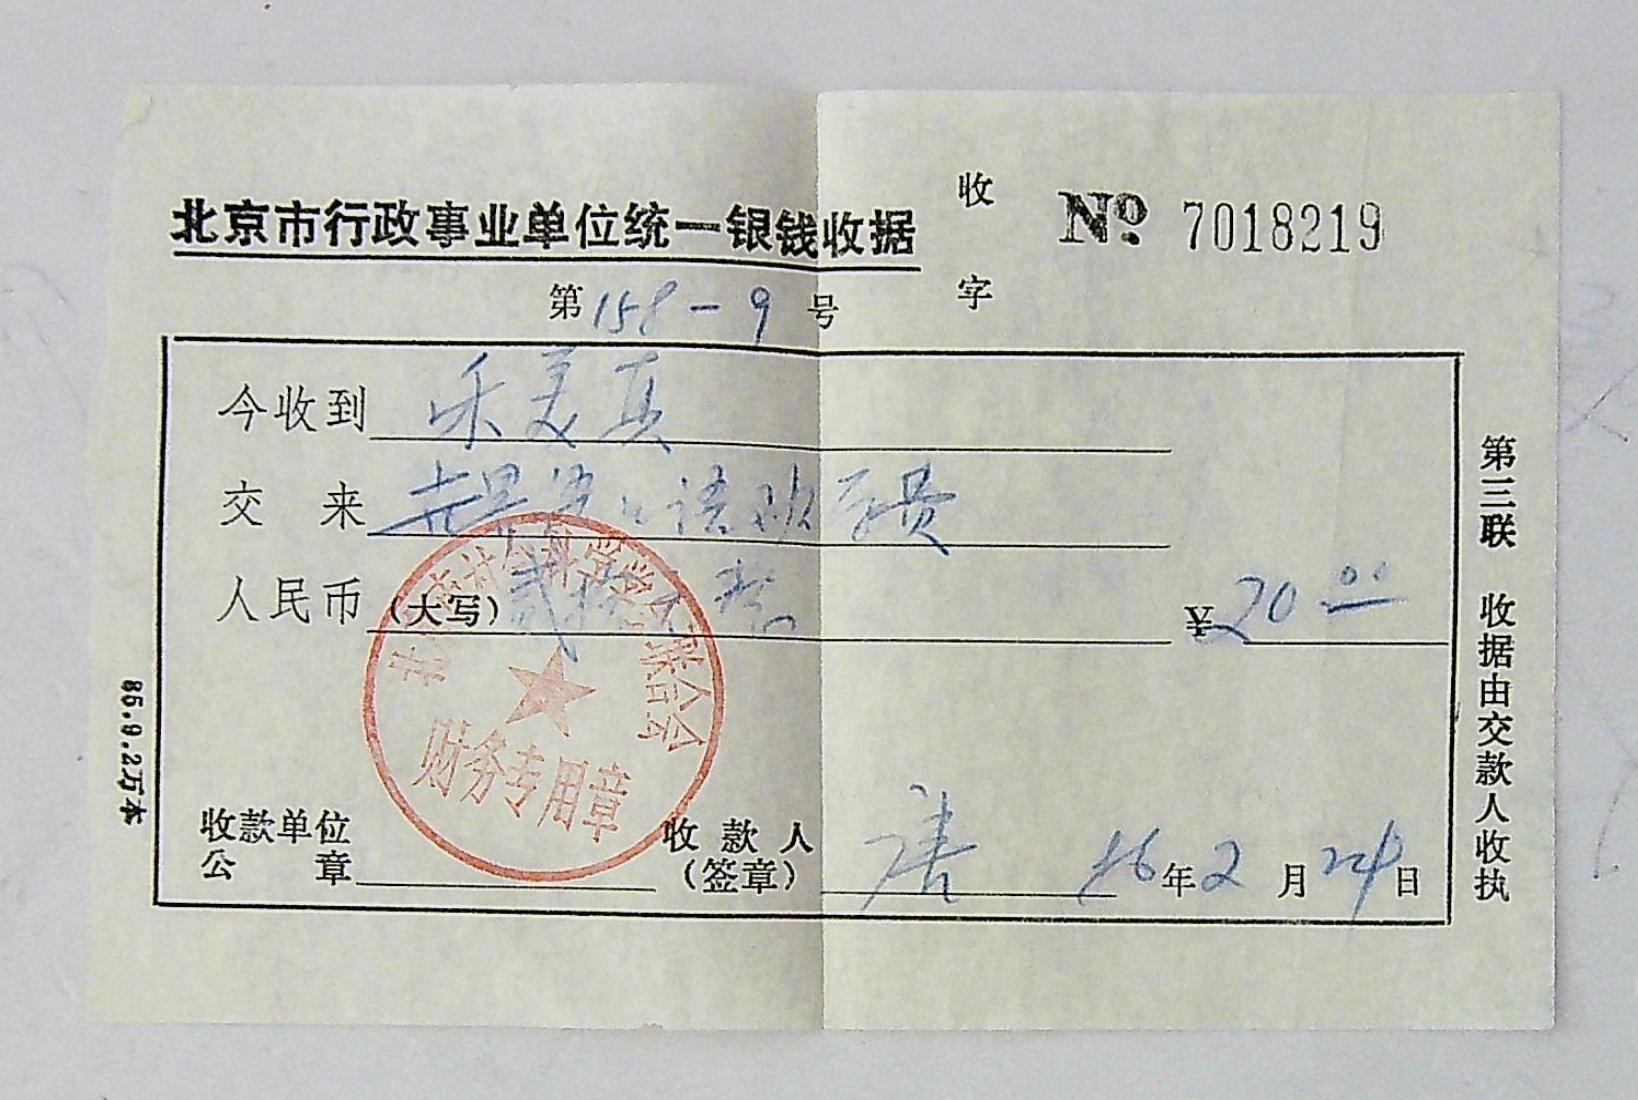 北京市行政事业单位统一银钱收据
收
字
№ 7018219
第158-9号
今收到 乐美真
交来
人民币(大写)贰拾元 ¥20.00
财务专用章
收款单位
公章
收款人
(签章) 唐
86年2月24日
第三联 收据由交款人收执
85.9.2万本